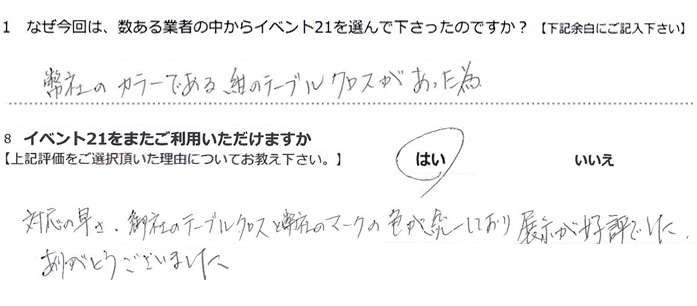 1 なぜ今回は、数ある業者の中からイベント21を選んで下さったのですか?【下記余白にご記入下さい】
弊社のカラーである紺のテーブルクロスがあった為
8 イベント21をまたご利用いただけますか
【上記評価をご選択頂いた理由についてお教え下さい。】 はい いいえ
対応の早さ、御社のテーブルクロスと弊社のマークの色が統一しており展示が好評でした。
ありがとうございました